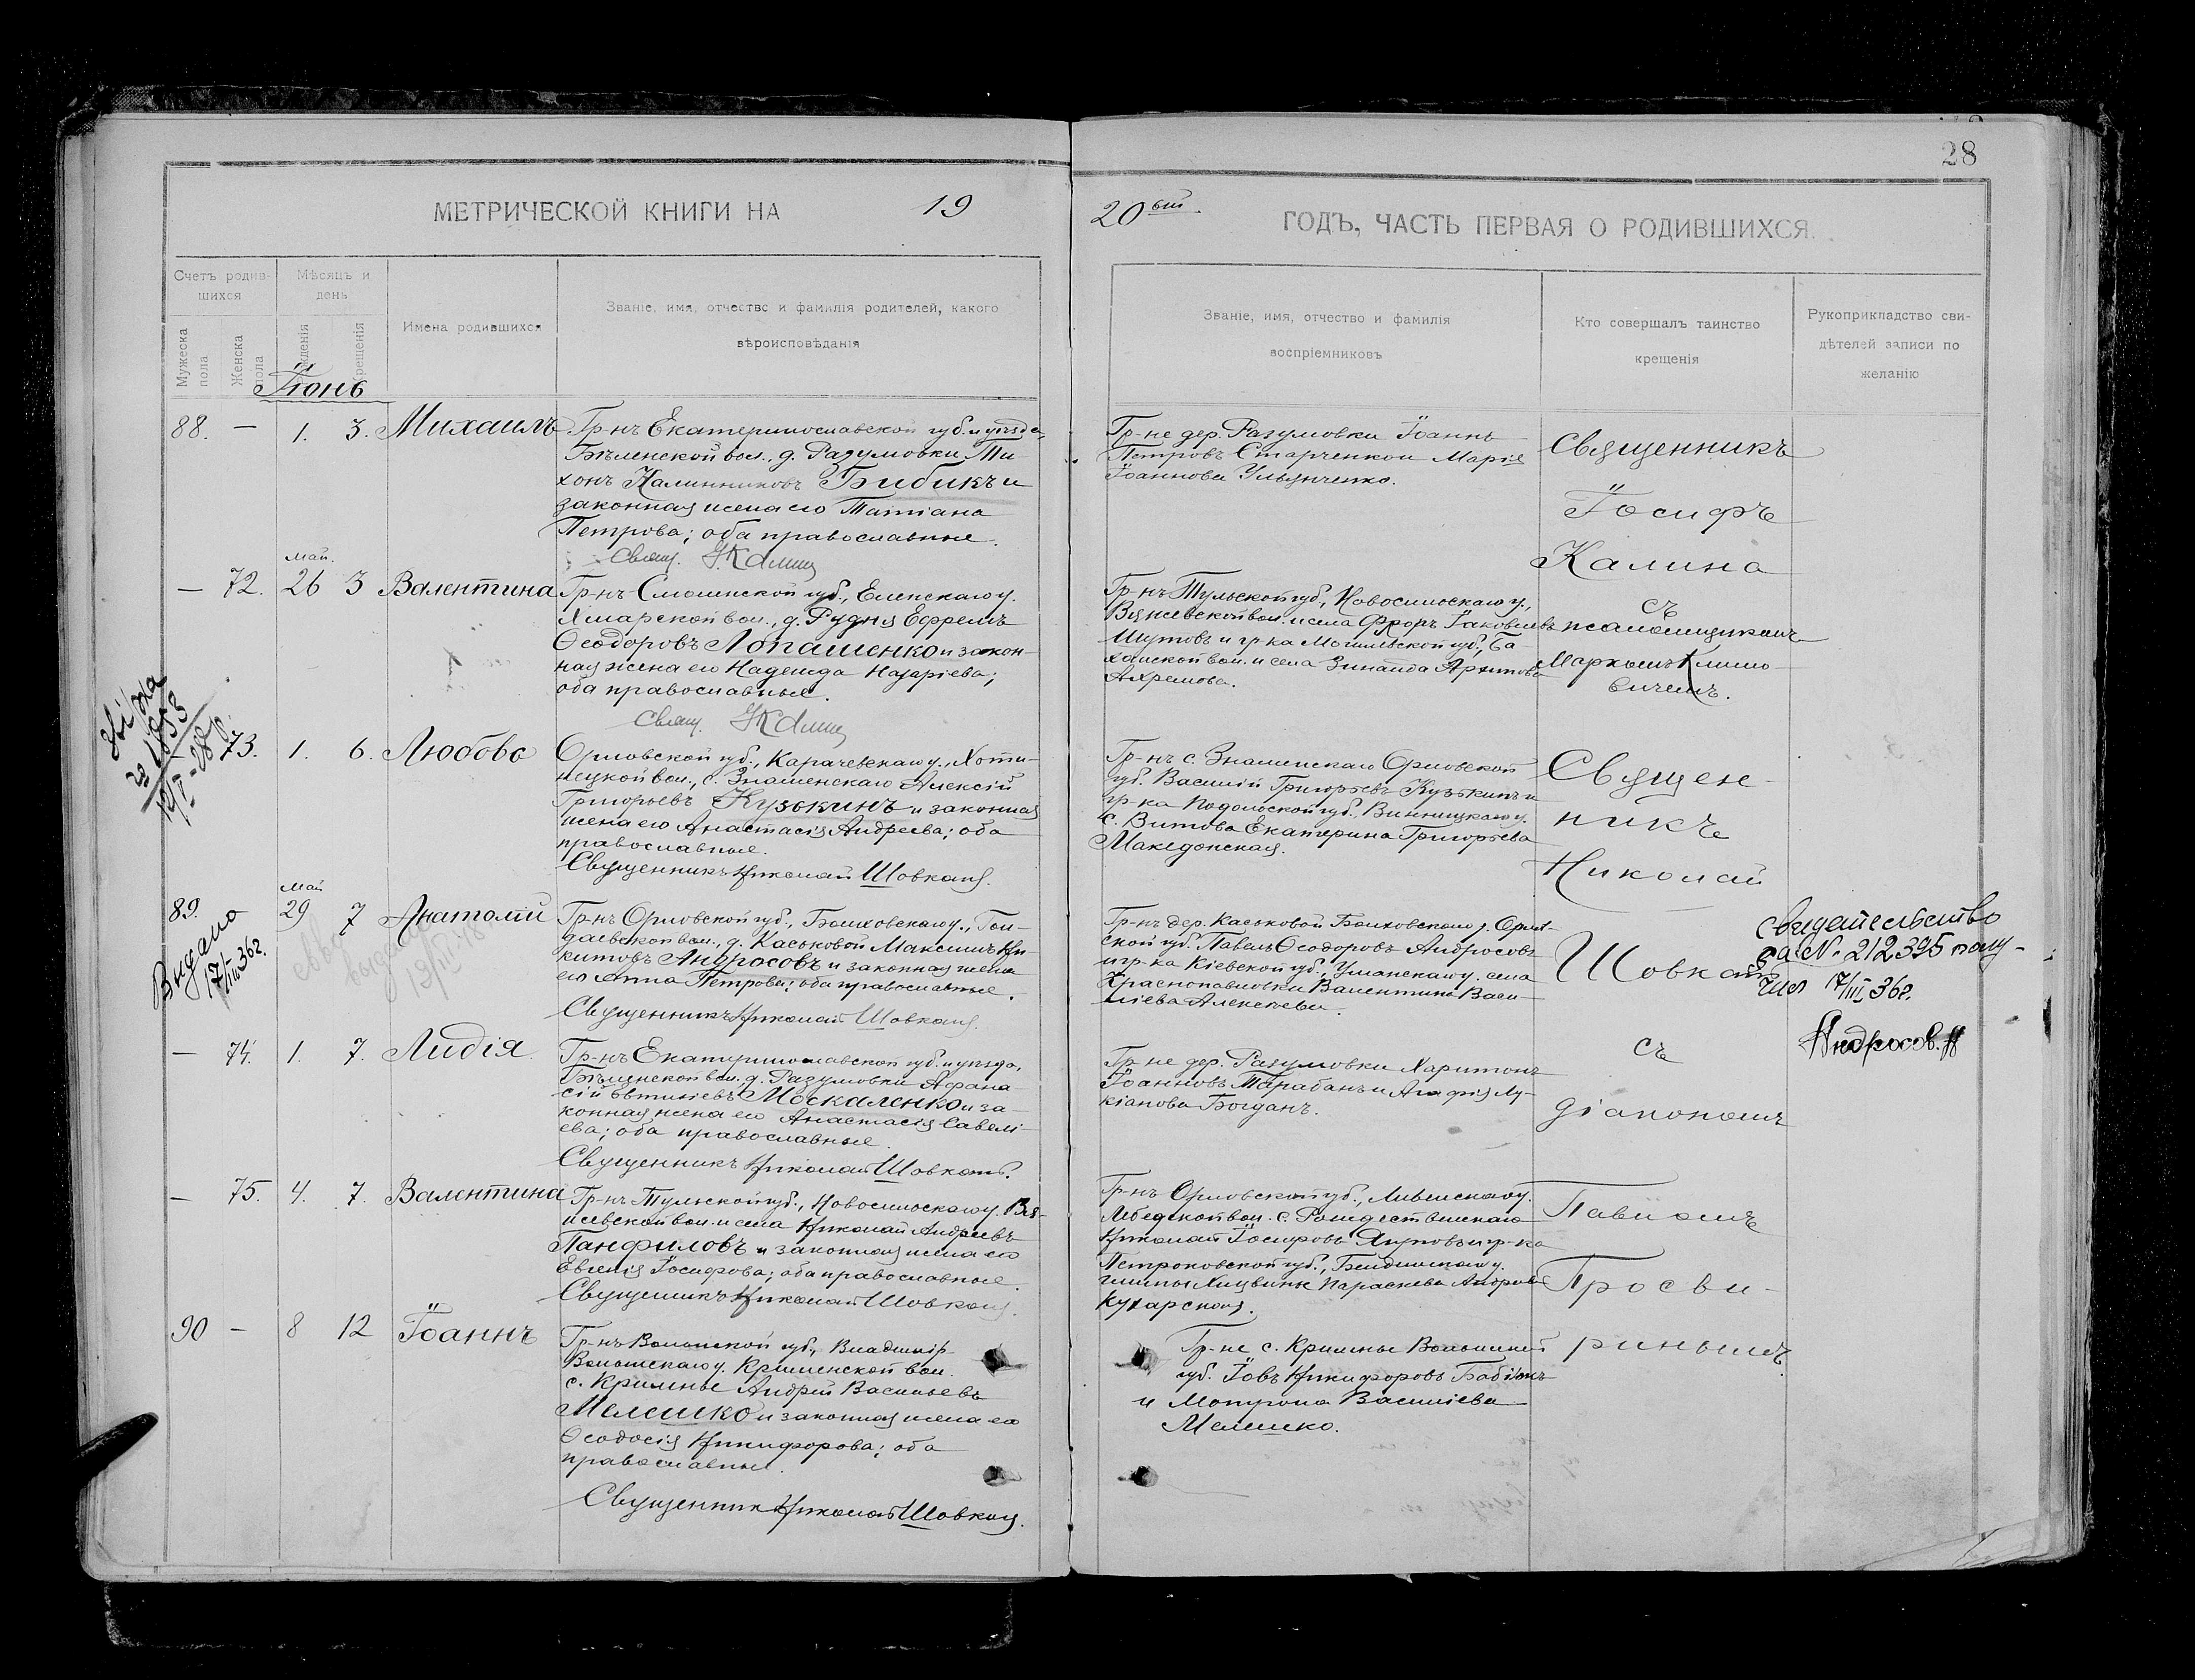 28
МЕТРИЧЕСКОЙ КНИГИ НА 19
20ый. ГОДЪ, ЧАСТЬ ПЕРВАЯ О РОДИВШИХСЯ.
Счетъ родив-
шихся
Мужеска пола
Женска пола
Мѣсяцъ и
день
рожденія
крещенія
Имена родившихся
Званіе, имя, отчество и фамилія родителей, какого
вѣроисповѣданія
Званіе, имя, отчество и фамилія
воспріемниковъ
Кто совершалъ таинство
крещенія
Рукоприкладство сви-
дѣтелей записи по
желанію
Іюнь
88. — 1. 3. Михаилъ
Гр-нъ Екатеринославской губ. и уѣзда,
Бѣленской вол., д. Разумовки Ти-
хонъ Калинниковъ Бибикъ и
законная жена его Татіана
Петрова; оба православные.
Свящ. І. Калина
Гр-не дер. Разумовки Іоаннъ
Петровъ Старченко и Марія
Іоаннова Ульянченко.
Священникъ
Іосифъ
Калина
съ
псаломщикомъ
Маркомъ Климо-
вичемъ.
май.
— 72. 26 3 Валентина
Гр-нъ Смоленской губ., Еленскаго у.
Хмарской вол., д. Рудня Ефремъ
Ѳеодоровъ Лопашенко и закон-
ная жена его Надежда Назаріева;
оба православные.
Свящ. І. Калина
Гр-нъ Тульской губ., Новосильскаго у.,
Вяжевской вол. и села Флоръ Іаковлевъ
Шутовъ и гр-ка Могилевской губ., Ба-
ханской вол. и села Зинаида Архипова
Ахремова.
73. 1. 6. Любовь
Орловской губ., Карачевскаго у., Хоти-
нецкой вол., с. Знаменскаго Алексій
Григорьевъ Кузькинъ и законная
жена его Анастасія Андреева; оба
православные.
Священникъ Николай Шовкопл.
Гр-нъ с. Знаменскаго Орловской
губ. Василій Григорьевъ Кузькинъ и
гр-ка Подольской губ., Винницкаго у.
с. Витова Екатерина Григорьева
Македонская.
Священ-
никъ
Николай
Шовкопл
съ
діакономъ
Павломъ
Просви-
ринымъ.
май
89. 29 7 Анатолій
Выдано
17/III 36г.
Гр-нъ Орловской губ., Болховскаго у., Гон-
даевской вол., д. Каськовой Максимъ Ни-
китовъ Андросовъ и законная жена
его Анна Петрова; оба православные.
Священникъ Николай Шовкопл.
Гр-нъ дер. Каськовой Болховскаго у. Орлов-
ской губ. Павелъ Ѳеодоровъ Андросовъ
и гр-ка Кіевской губ., Уманскаго у. села
Краснопавловки Валентина Васи-
ліева Алексѣева.
Свидетельство
за № 212395 полу-
чил 17/III 36г.
Андросов.
— 74. 1. 7. Лидія.
Гр-нъ Екатеринославской губ. и уѣзда,
Бѣленской вол. д. Разумовки Афана-
сій Евтихіевъ Москаленко и за-
конная жена его Анастасія Савелі-
ева; оба православные.
Священникъ Николай Шовкопл.
Гр-не дер. Разумовки Харитонъ
Іоанновъ Тарабанъ и Агафія Лу-
кіанова Богданъ.
— 75. 4. 7. Валентина
Гр-нъ Тульской губ., Новосильскаго у. Вя-
жевской вол. и села Николай Андреевъ
Панфиловъ и законная жена его
Евгенія Іосифова; оба православные.
Священникъ Николай Шовкопл.
Гр-нъ Орловской губ., Ливенскаго у.
Лебедской вол. с. Рождественскаго
Николай Іосифовъ Якуповъ и гр-ка
Петроковской губ., Бендинскаго у.
Параскева Андреева
Кухарская.
90 — 8 12 Іоаннъ
Гр-нъ Волынской губ., Владимір-
Волынскаго у. Крымненской вол.
с. Крымны Андрей Васильевъ
Мелешко и законная жена его
Ѳеодосія Никифорова; оба
православные.
Священник Николай Шовкопл.
Гр-не с. Крымны Волынской
губ. Іовъ Никифоровъ Бабіюкъ
и Мотрона Василіева
Мелешко.